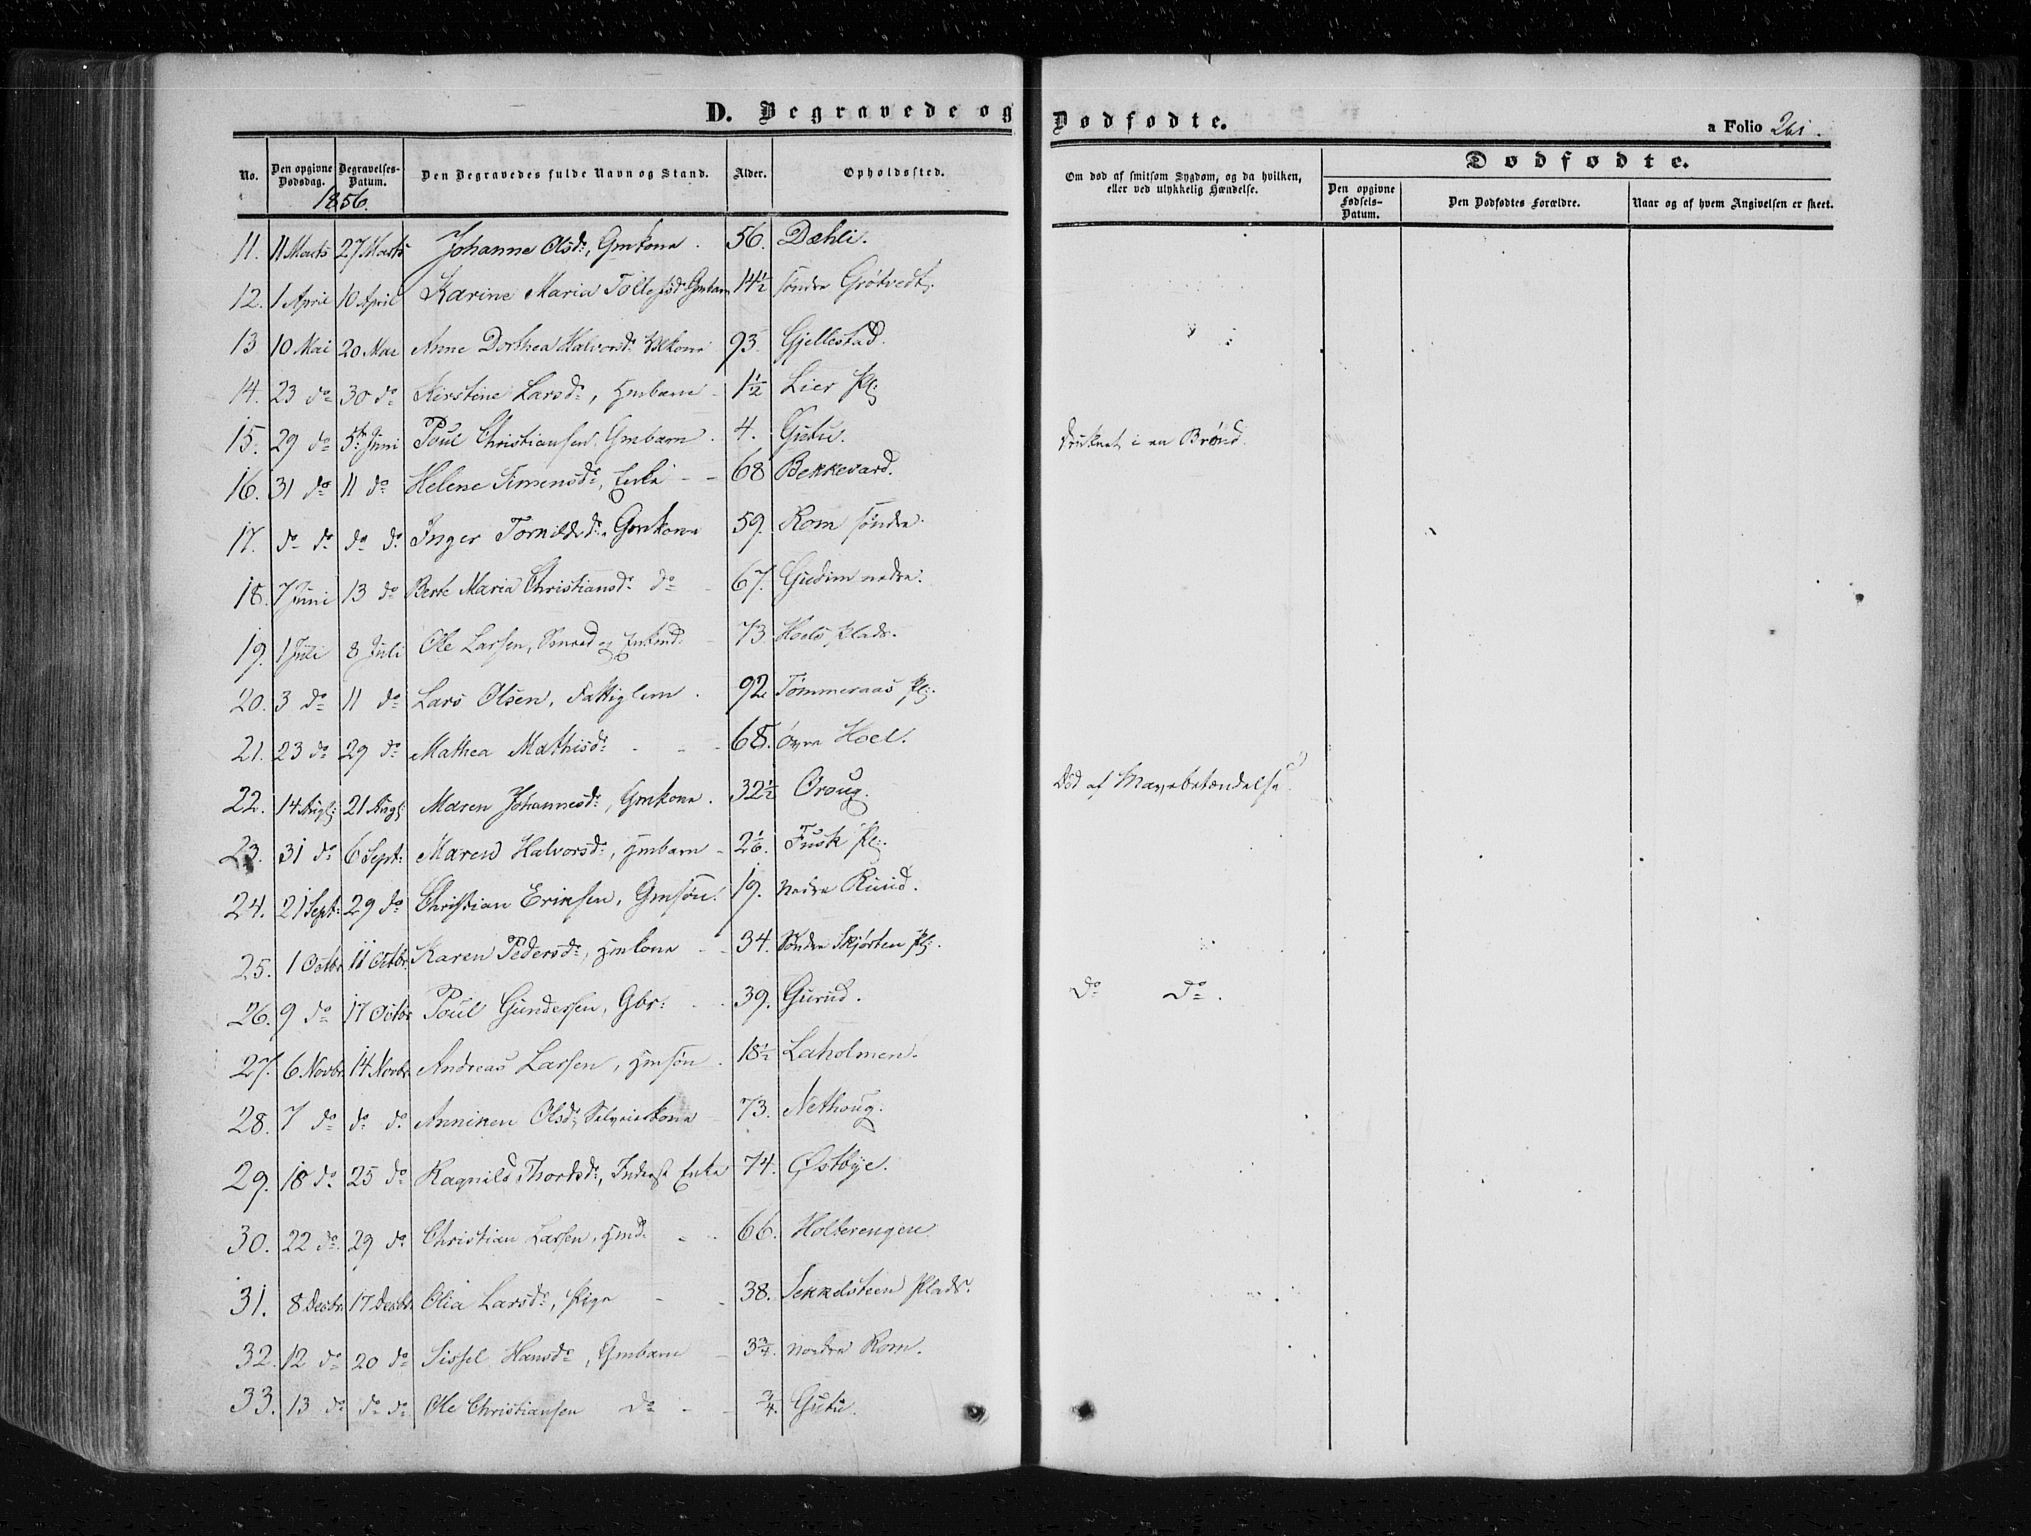 D. Begravede og Dødfødte.
a Folio 261.
No. Den opgivne Dødsdag. Begravelses-Datum. Den Begravedes fulde Navn og Stand. Alder. Opholdssted. Om død af smitsom Sygdom, og da hvilken, eller ved ulykkelig Hændelse. Dødfødte. Den opgivne Fødsels-Datum. Den Dødfødtes Forældre. Naar og af hvem Angivelsen er skeet.
1856.
11. 11 Marts 27 Marts Johanne Olsdr, Gmkone. 56. Dæhli.
12. 1 April 10 April Karine Maria Tollefsdr Gmbarn 14½ søndre Grøtvedt.
13 10 Mai 20 Mai Anne Dorthea Halvorsdr 93. Gjellestad.
14. 23 do 30 do Kirstine Larsdr, Hmbarn - 1½ Lier Pl:
15. 29 do 5te Juni Poul Christiansen, Gmbarn. 4. Gutu. druknet i en Brønd.
16. 31 do 11 do Helene Simensdr, Enke - - 68 Bekkevard.
17. do do do do Inger Gmkone 59. Rom søndre.
18. 7 Juni 13 do Berte Maria Christiansdr do - 67. Gudim nedre.
19. 1 Juli 8 Juli Ole Larsen, og Enkmd. - 73. Hoels Plads.
20. 3 do 11 do Lars Olsen, Fattiglem. 92. Tømmeraas Pl:
21. 23 do 29 do Mathea Mathisdr - - - 68. øvre Hoel.
22. 14 Augs: 21 Augs: Maren Johannesdr, Gmkone. 32½ Oroug. Død af Mavebetændelse.
23. 31 do 6 Sept: Maren Halvorsdr, Hmbarn - 2⅙. Fusk Pl:
24. 21 Sept: 29 do Christian Eriksen, Gmsøn. 19. nedre Ruud.
25. 1 Octbr. 11 Octbr. Karen Pedersdr, Hmkone - - 34. Søndre Skjørten Pl:
26. 9 do 17 Octbr Poul Gundersen, Gbr: - - 39. Gurud. do do.
27. 6 Novbr. 14 Novbr. Andreas Larsen, Hmsøn. 18½ Laholmen.
28. 7 do do do Anniken Olsdr, Selveierkone - 73. Nethoug.
29. 18 do 25 do Ragnild Thordsdr, Inderst Enke 74. Østbye.
30. 22 do 29 do Christian Larsen, Hmd. - - 66. Holterengen.
31. 8 Decbr. 17 Decbr. Olia Larsdr, Pige - - 38. Sekkelsteen Plads.
32. 12 do 20 do Sissel Hansdr, Gmbarn - 3¾. nordre Rom.
33. 13 do do do Ole Christiansen do - - ¾. Gutu.